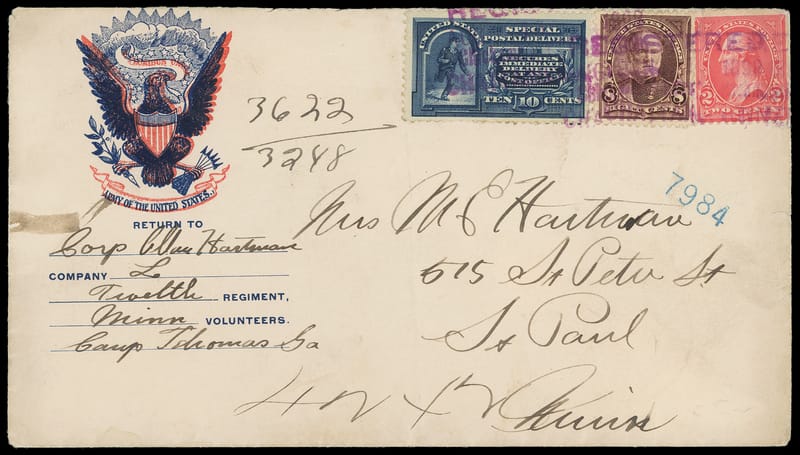 E PLURIBUS UNUM
ARMY OF THE UNITED STATES.
RETURN TO
Corp Wm Hartman
COMPANY L
Twelth REGIMENT,
Minn VOLUNTEERS.
Camp Thomas Ga
3622
3248
UNITED STATES
SPECIAL
POSTAL DELIVERY
SECURES
IMMEDIATE
DELIVERY
AT ANY
POST OFFICE
TEN 10 CENTS
8 8
EIGHT CENTS
2 2
TWO CENTS
REGISTERED
7984
Mrs M E Hartman
515 St Peter St
St Paul
Minn